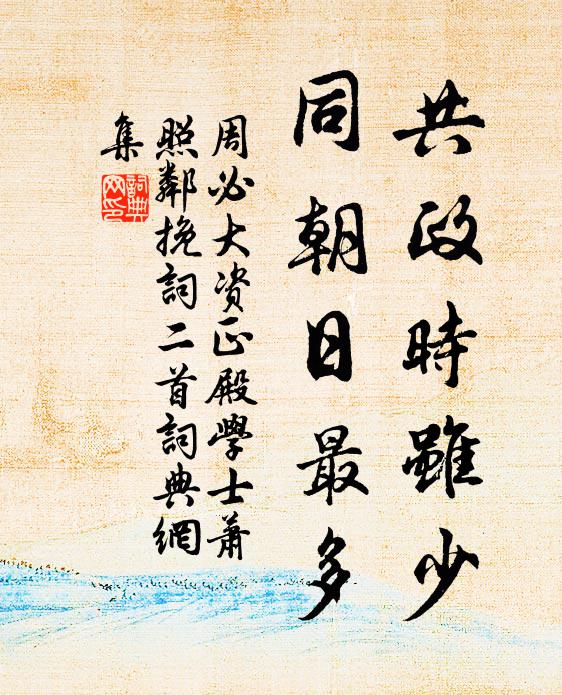 共政時雖少
同朝日最多
周必大資正殿學士蕭
照鄰挽詞二首詞典網
集
詞典
网印